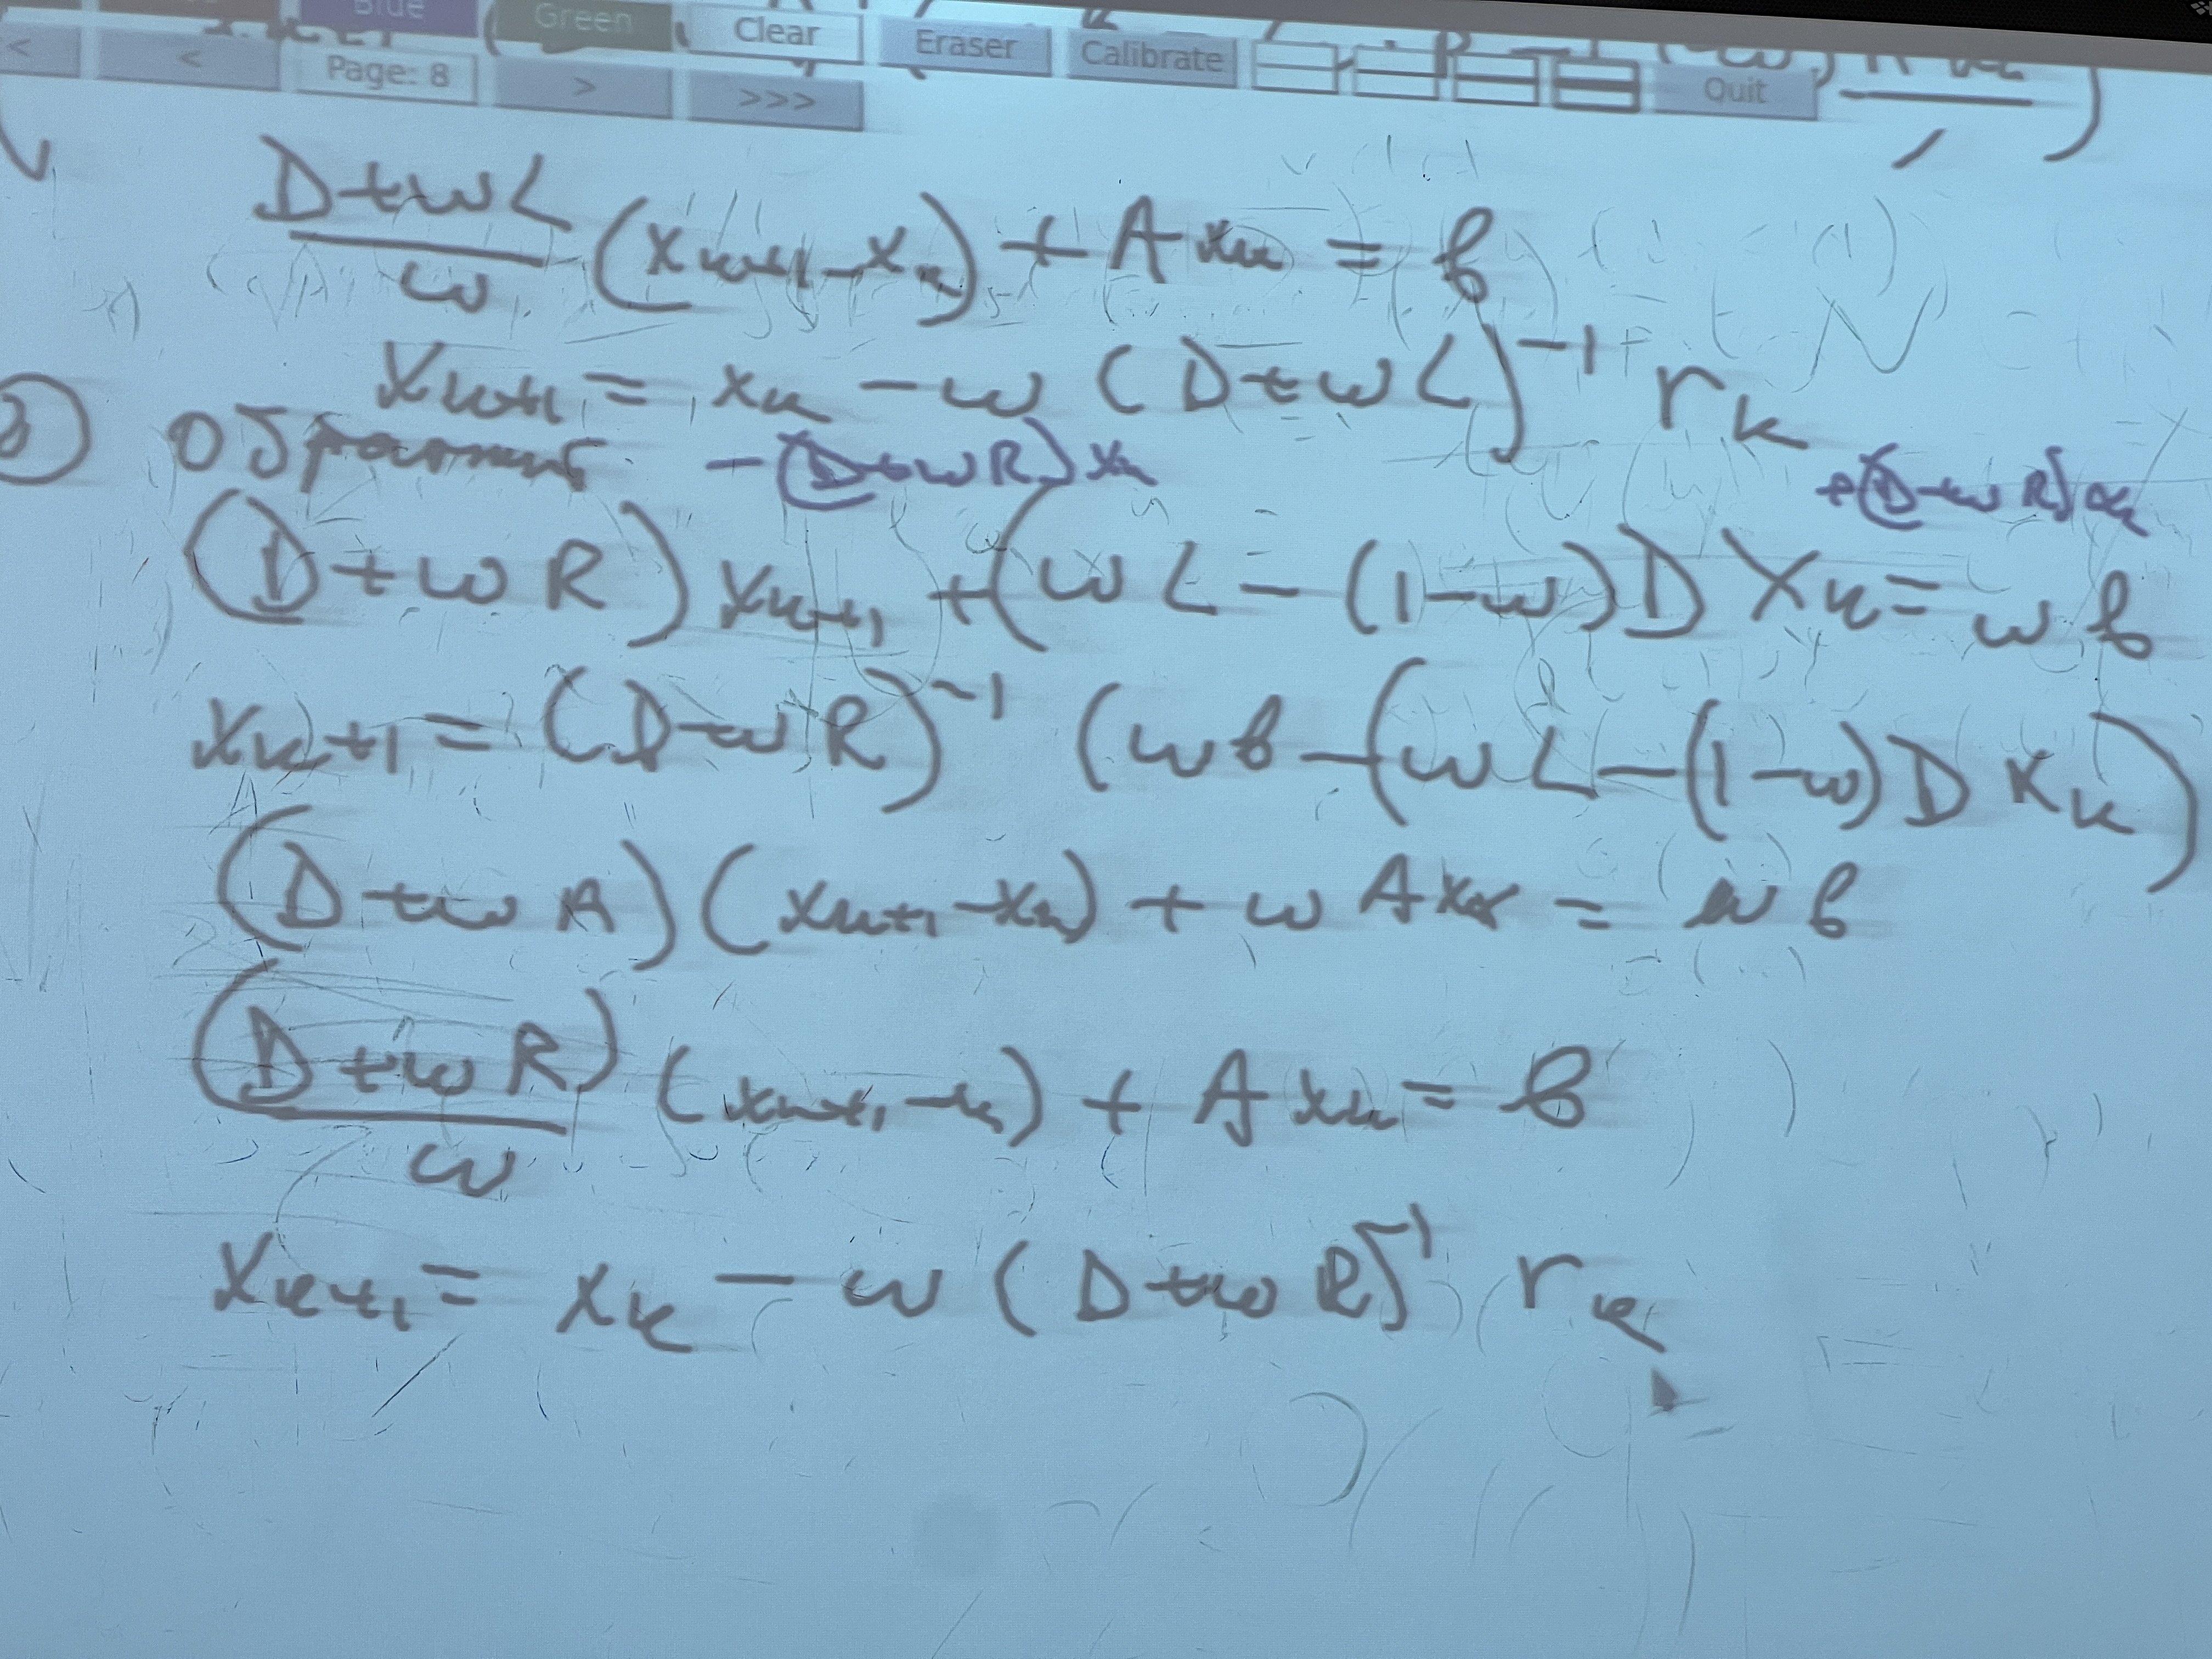 Blue Green Clear Eraser Calibrate
< < Page: 8 > >>> Quit
D+ωL / ω (x_{k+1} - x_k) + A x_k = b
x_{k+1} = x_k - ω (D+ωL)^{-1} r_k
обратный - (D+ωR) x_k + (D+ωR) x_k
(D+ωR) x_{k+1} + (ωL - (1-ω)D x_k = ωb
x_{k+1} = (D+ωR)^{-1} (ωb - (ωL - (1-ω)D x_k)
(D+ωR)(x_{k+1} - x_k) + ωA x_k = ωb
(D+ωR) / ω (x_{k+1} - x_k) + A x_k = b
x_{k+1} = x_k - ω (D+ωR)^{-1} r_k